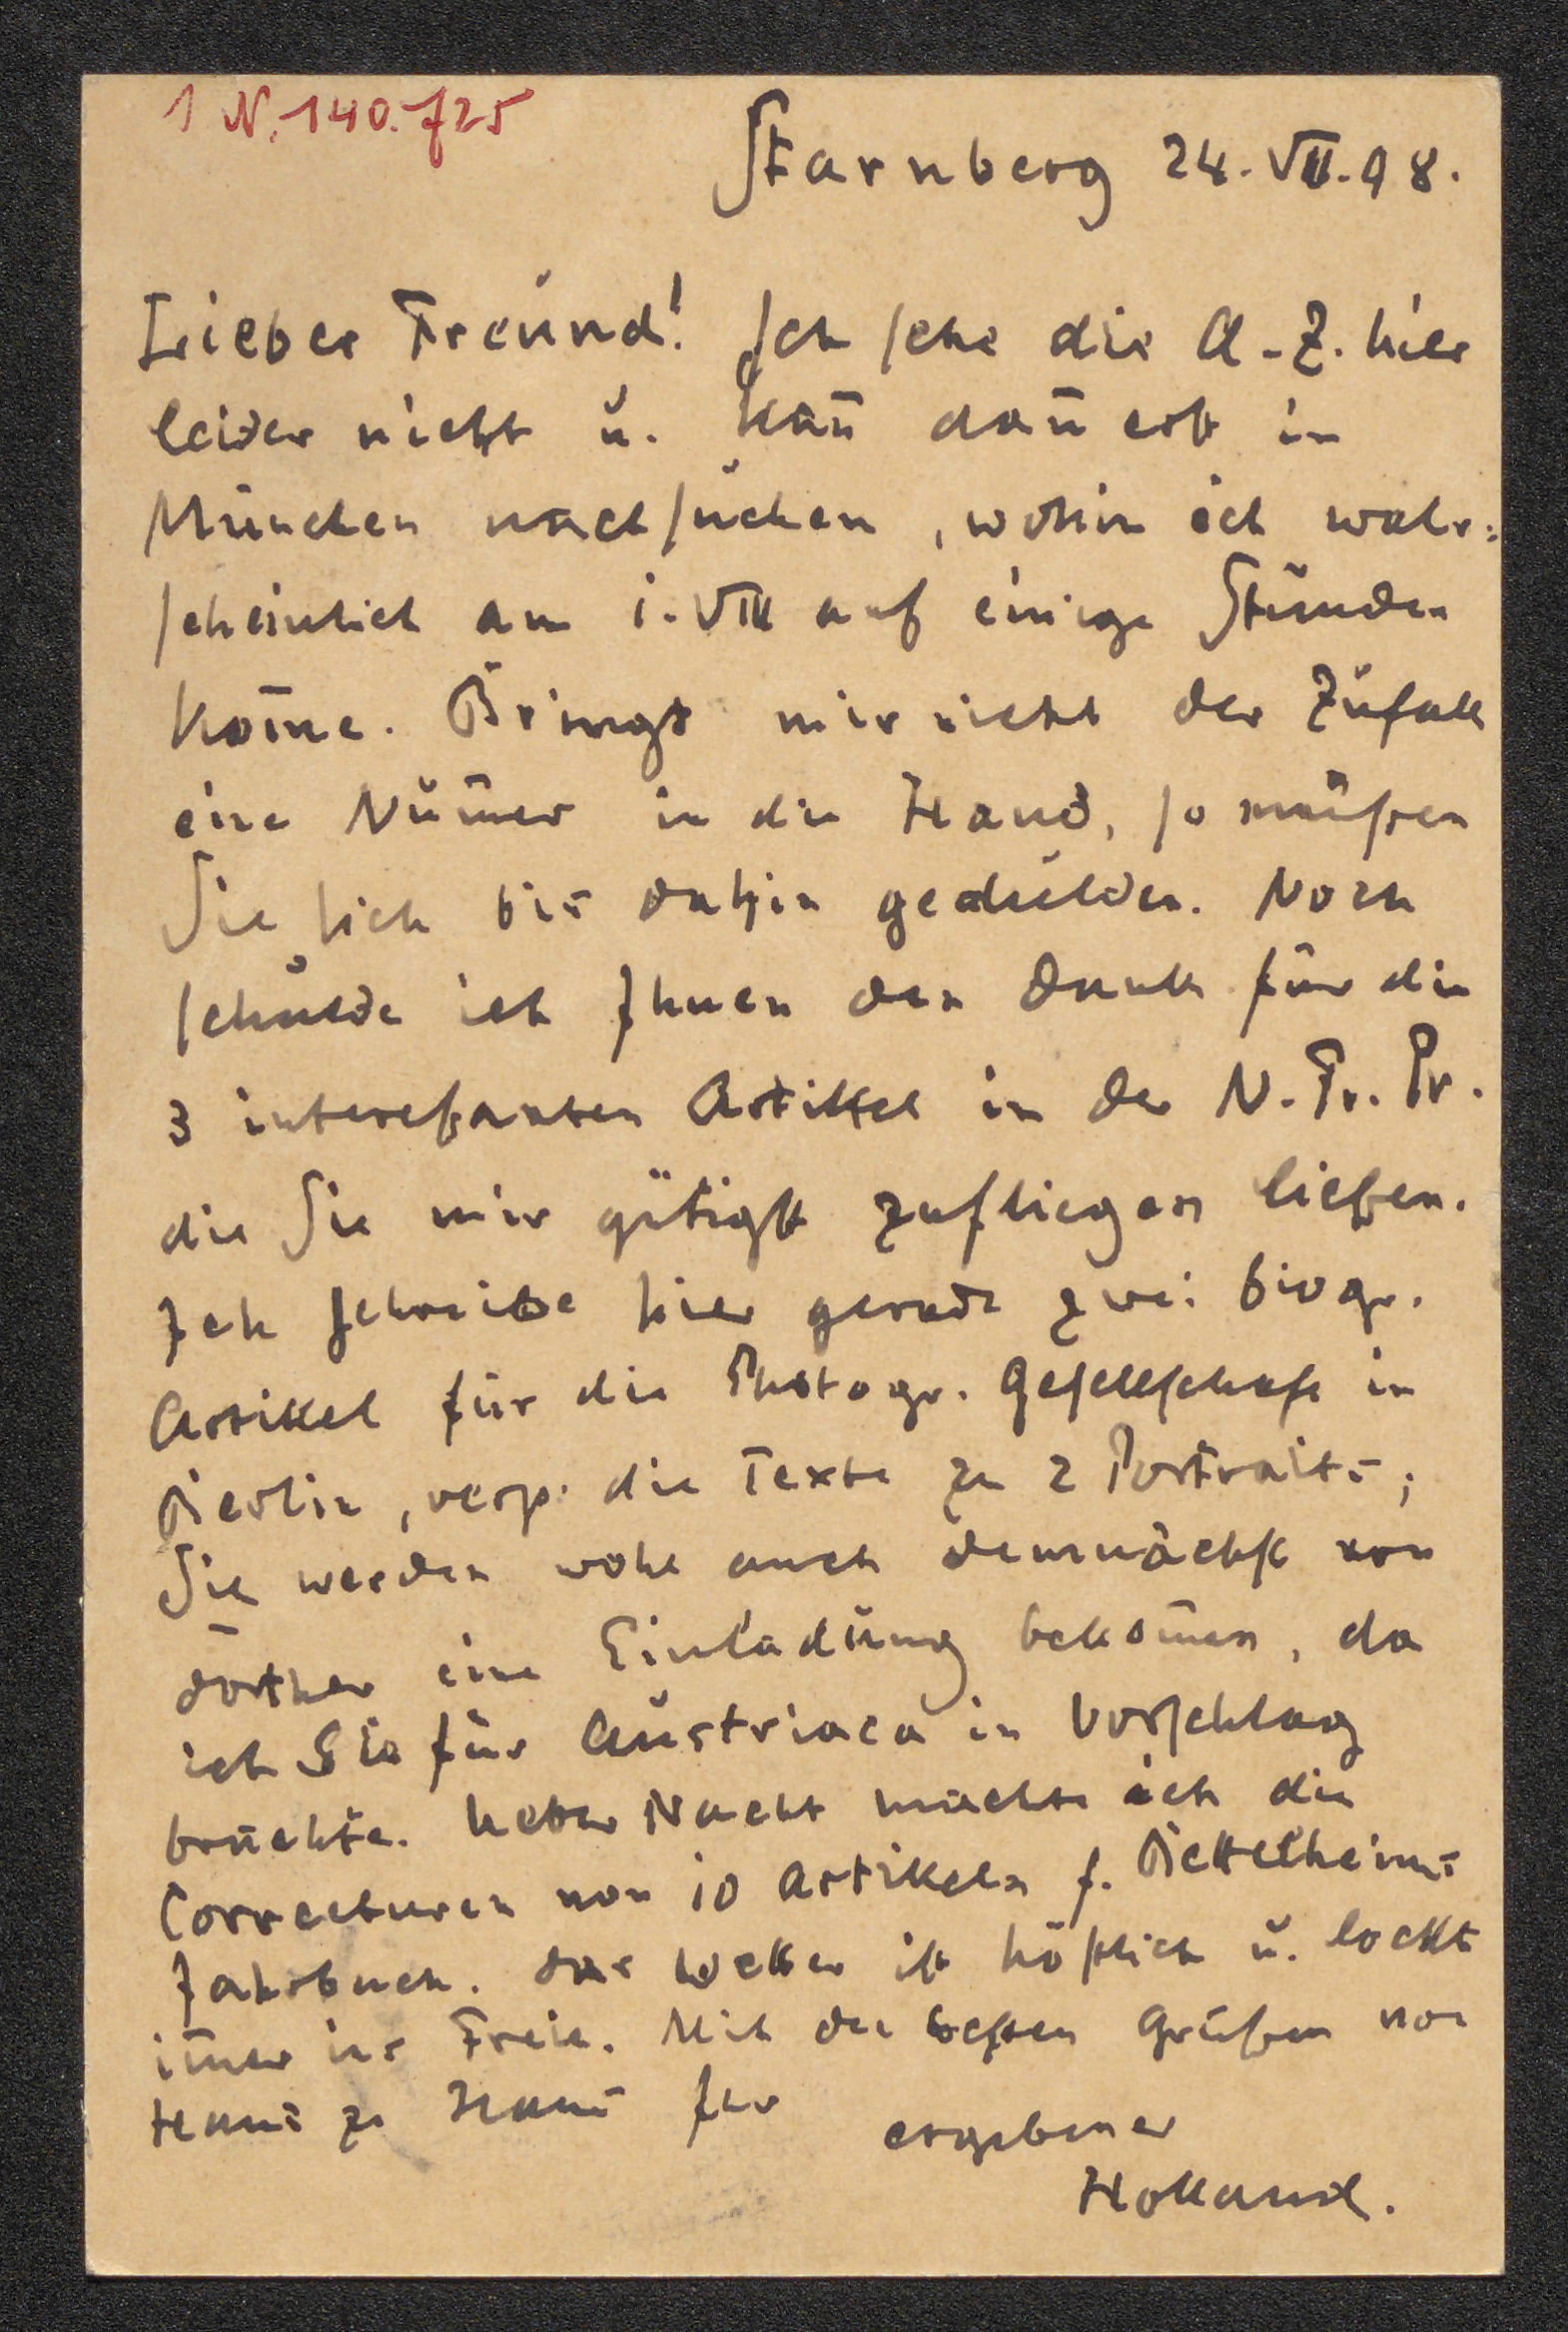 1 N. 140.725
Starnberg 24. VII. 98.
Lieber Freund! Ich sehe die A. Z. hier
leider nicht u. kañ dañ erst in
München nachsuchen, wohin ich wahr=
scheinlich am 1. VIII auf einige Stunden
kom̄e. Bringt mir nicht der Zufall
eine Num̄er in die Hand, so müßen
Sie sich bis dahin gedulden. Noch
schulde ich Ihnen den Dank für die
3 intereßanten Artikel in der N. Fr. Pr.
die Sie mir gütigst zufliegen ließen.
Ich schreibe hier gerade zwei biogr.
Artikel für die Photogr. Gesellschaft in
Berlin, resp. die Texte zu 2 Portraits;
Sie werden wohl auch demnächst von
dorther eine Einladung bekom̄en, da
ich Sie für Austriaca in Vorschlag
brachte. Ueber Nacht machte ich die
Correcturen von 10 Artikeln f. Bettelheims
Jahrbuch. Das Wetter ist köstlich u. lockt
im̄er ins Freie. Mit den besten Grüßen von
Haus zu Haus Ihr
ergebener
Holland.